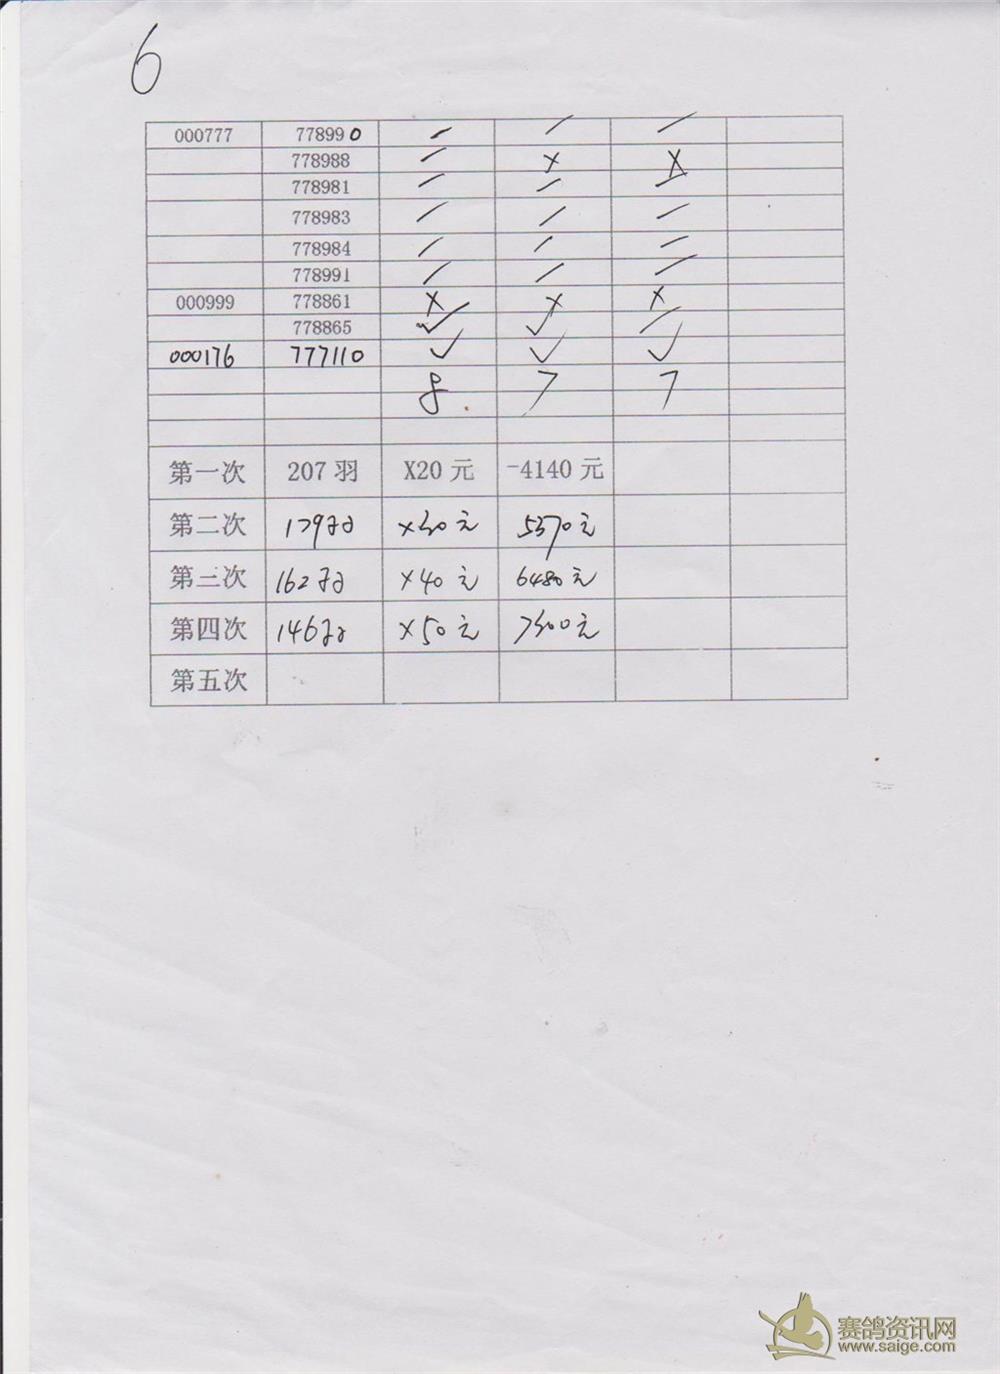 6
000777 778990 / / /
778988 / × ×
778981 / / /
778983 / / /
778984 / / /
778991 / / /
000999 778861 × × ×
778865 ✓ ✓ /
000176 777110 ✓ ✓ ✓
8 7 7
第一次 207羽 X20元 -4140元
第二次 179羽 ×30元 5370元
第三次 162羽 ×40元 6480元
第四次 146羽 ×50元 7300元
第五次
赛鸽资讯网
www.saige.com